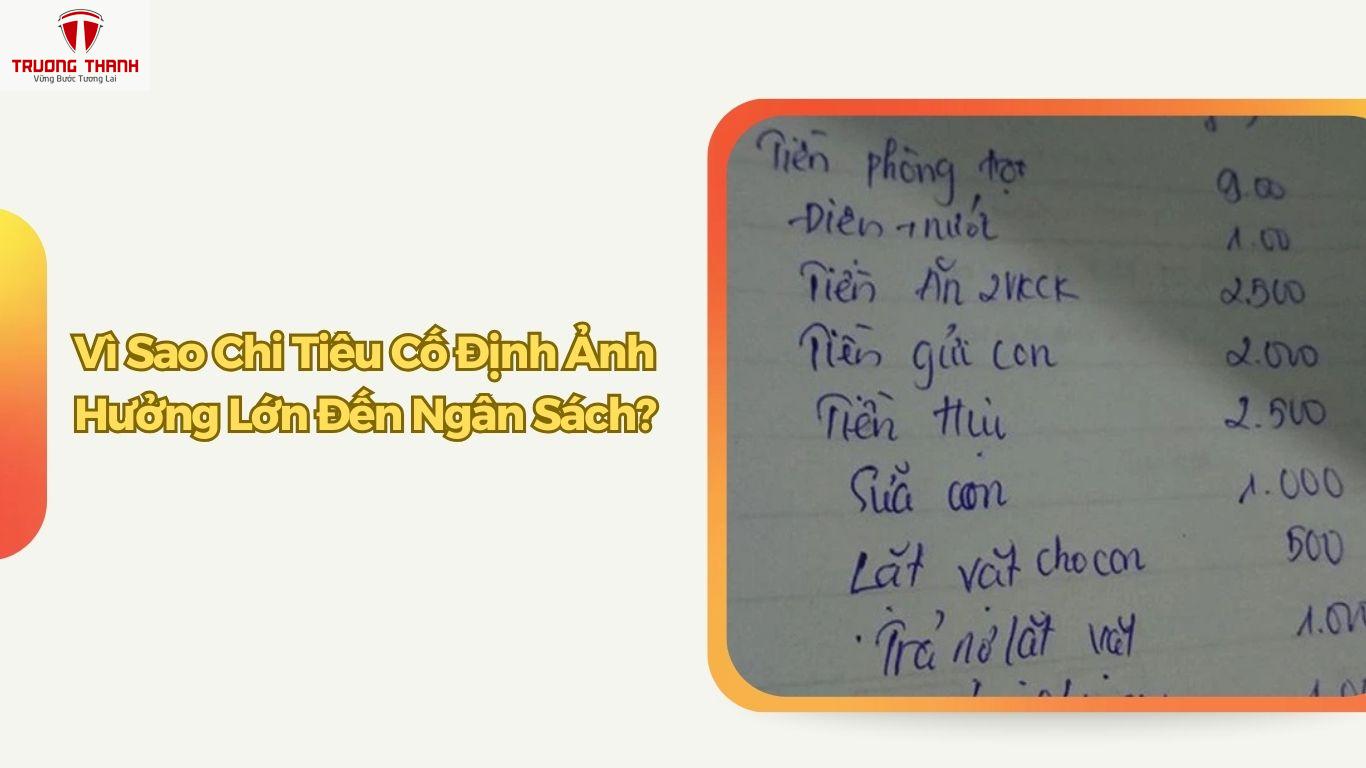 TRUONG THANH
Vững Bước Tương Lai
Vì Sao Chi Tiêu Cố Định Ảnh
Hưởng Lớn Đến Ngân Sách?
Tiền phòng trọ 9.00
Điên + nước 1.00
Tiền Ăn 2VKCK 2.500
Tiền gửi con 2.000
Tiền Hụi 2.500
Sữa con 1.000
Lặt vặt cho con 500
Trả nợ lặt vặt